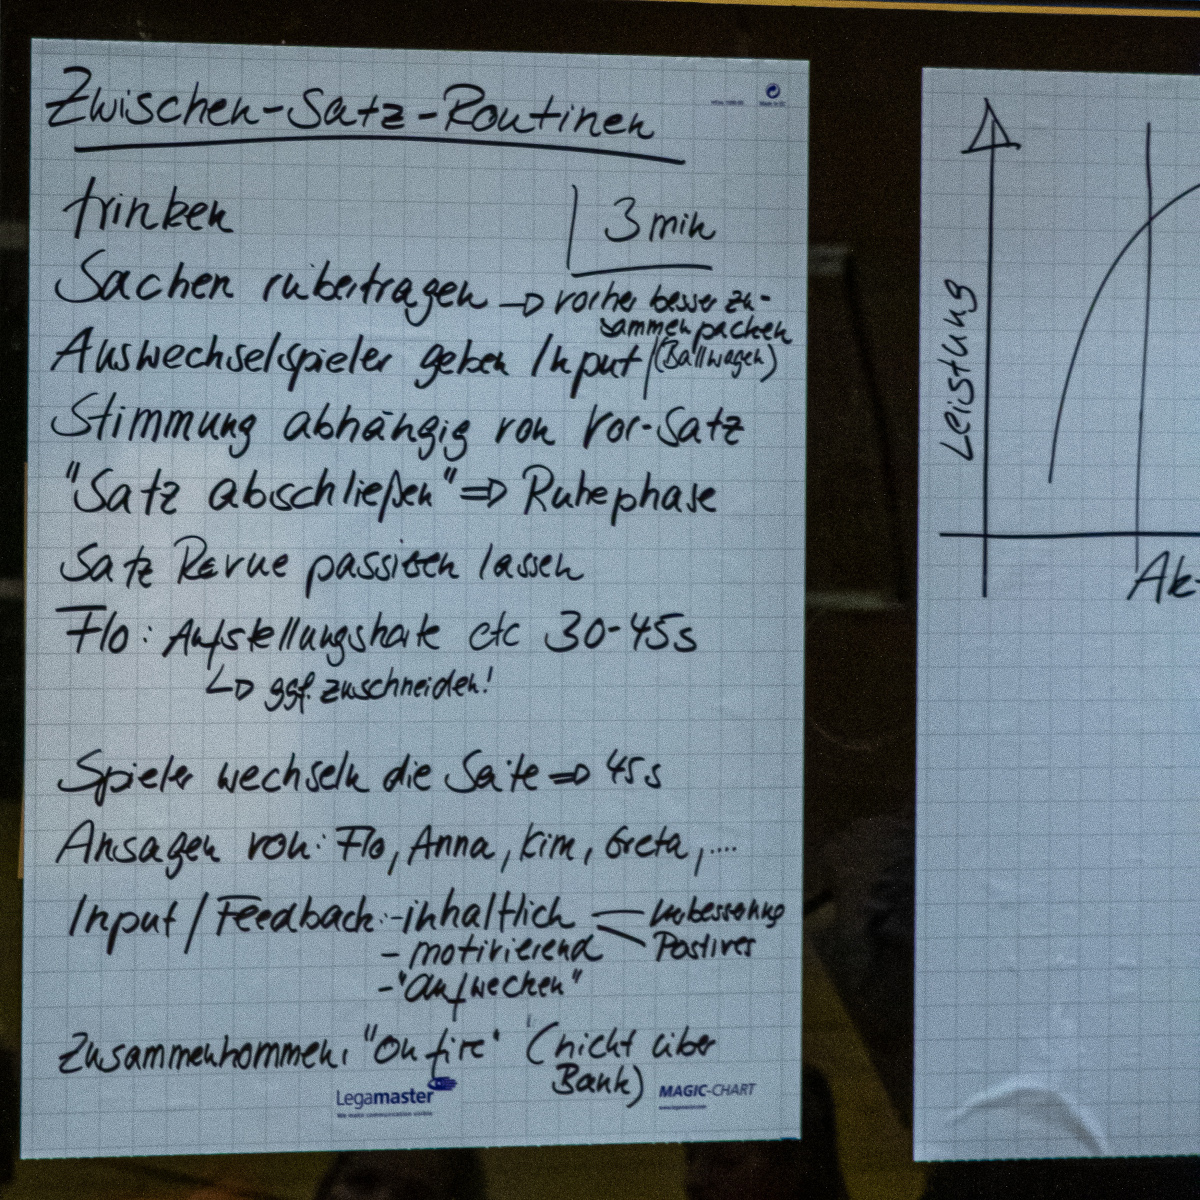 Zwischen-Satz-Routinen
trinken
3 min
Sachen rübertragen → vorher besser zu-
sammenpacken
(Ballwagen)
Auswechselspieler geben Input /
Stimmung abhängig von Vor-Satz
"Satz abschließen" ⇒ Ruhephase
Satz Revue passieren lassen
Flo: Aufstellungskarte etc 30-45s
↳ ggf. zuschneiden!
Spieler wechseln die Seite ⇒ 45s
Ansagen von: Flo, Anna, Kim, Greta, ....
Input / Feedback: - inhaltlich
Verbesserung
Positives
- motivierend
- "aufwecken"
Zusammenkommen, "On fire" (nicht über
Bank)
Legamaster
We make communication visible
MAGIC-CHART
www.legamaster.com
Leistung
Ak-